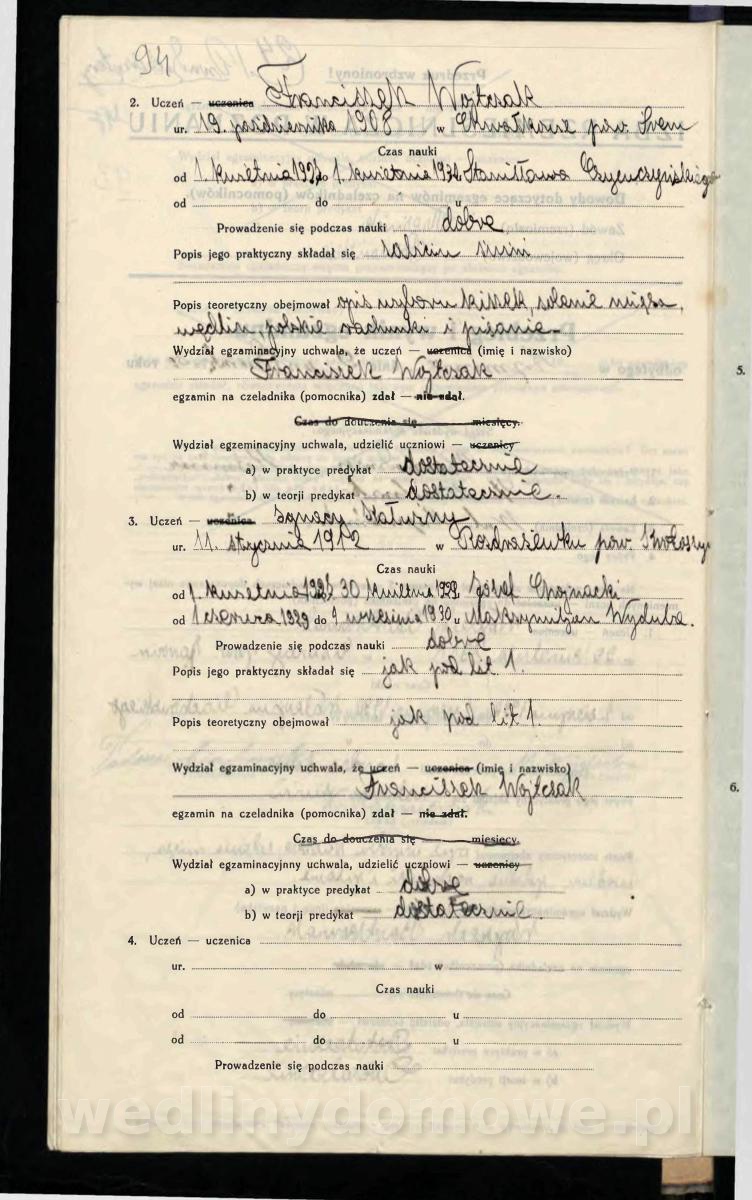 94
2. Uczeń — uczenica Franciszek Wojtczak
ur. 19. października 1908 w pow. Śrem
Czas nauki
od 1. kwietnia do 1. kwietnia Stanisława
od do u
Prowadzenie się podczas nauki dobre
Popis jego praktyczny składał się
Popis teoretyczny obejmował opis wyboru kiszek, solenie mięsa,
wędlin, polskie rachunki i pisanie
Wydział egzaminacyjny uchwala, że uczeń — uczenica (imię i nazwisko)
Franciszek Wojtczak
egzamin na czeladnika (pomocnika) zdał — nie zdał.
Czas do douczenia się miesięcy.
Wydział egzeminacyjny uchwala, udzielić uczniowi — uczenicy
a) w praktyce predykat dostatecznie
b) w teorji predykat dostatecznie.
3. Uczeń — uczenica Ignacy
ur. 11. stycznia 1912 w Rozdrażewku pow.
Czas nauki
od 1. kwietnia 30 kwietnia Józef Chojnacki
od 1 czerwca 1929 do 9 września 1930 u Maksymiljan Wyduba.
Prowadzenie się podczas nauki dobre
Popis jego praktyczny składał się jak pod lit 1.
Popis teoretyczny obejmował jak pod lit 1.
Wydział egzaminacyjny uchwala, że uczeń — uczenica (imię i nazwisko)
Franciszek Wojtczak
egzamin na czeladnika (pomocnika) zdał — nie zdał.
Czas do douczenia się miesięcy.
Wydział egzaminacyjnny uchwala, udzielić uczniowi — uczenicy
a) w praktyce predykat dobre
b) w teorji predykat dostatecznie.
4. Uczeń — uczenica
ur. w
Czas nauki
od do u
od do u
Prowadzenie się podczas nauki
5.
6.
wedlinydomowe.pl